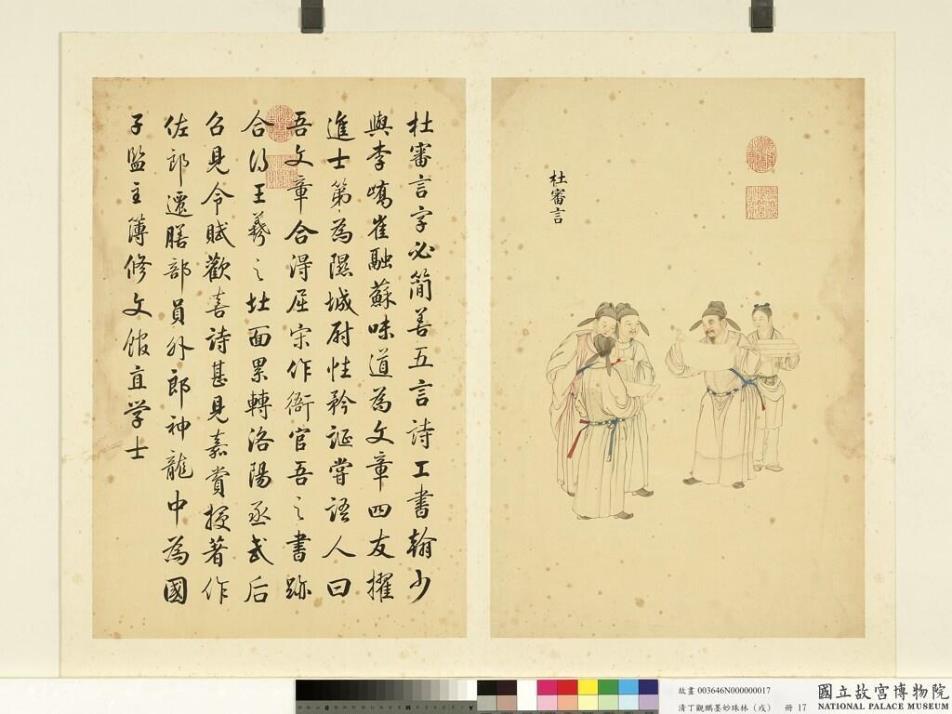 杜審言
杜審言字必簡善五言詩工書翰少
與李嶠崔融蘇味道為文章四友擢
進士第為隰城尉性矜誕嘗語人曰
吾文章合得屈宋作衙官吾之書跡
合得王羲之北面累轉洛陽丞武后
召見令賦歡喜詩甚見嘉賞授著作
佐郎遷膳部員外郎神龍中為國
子監主簿修文館直学士
故畫 003646N000000017
清丁觀鵬墨妙珠林(戌) 冊 17
國立故宮博物院
NATIONAL PALACE MUSEUM